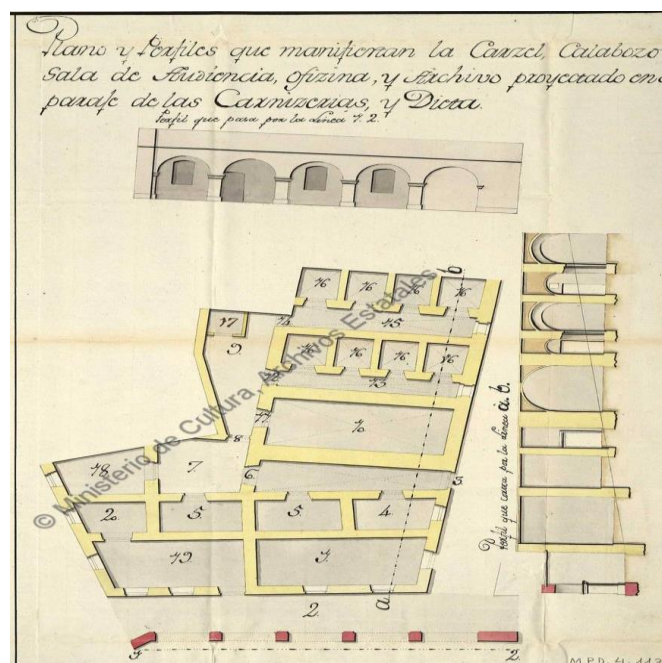 Plano y Perfiles que manifiestan la Carzel, Calabozo
Sala de Audiencia, ofizina, y Archivo proyectado en e
paraje de las Carnizerias, y Dicta.
Perfil que pasa por la Linea 1. 2.
b
16 16 16 16
17 14 15
9.
16 16 16 16
13
11
10.
8
18 7. 6. 3.
20 5. 5. 4.
19 3.
2. a
1 2.
Perfil que corta por la Linea a. b.
© Ministerio de Cultura. Archivos Estatales
M.P.D. 4. 113